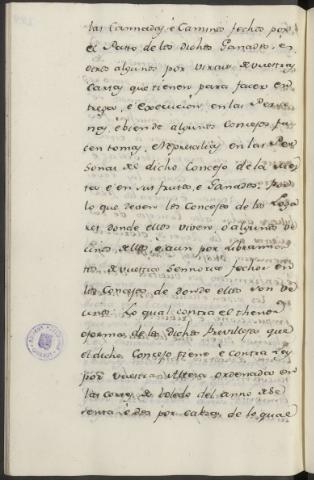 las Cannadas, é Caminos fechos por
el Passo de los dichos Ganados, en
otros algunos por virtud de vuestras
Cartas que tienen para facer en
tregas, é Execucion en las Perso
nas, é bienes de algunos Concejos fa
cen tomas, é Represalias en las Per
sonas de dicho Concejo de la Mes
ta é en sus frutos, é Ganados, por
lo que deven los Concejos de los Luga
res donde ellos viven, ó algunos ve
cinos de ellos, é aun por
tos de vuestros Sennorios fechos en
los Concejos de donde ellos son ve
cinos. Lo qual contra el thenor
é forma de los dichos Privilegios que
el dicho Concejo tiene é contra Ley
por vuestra Alteza ordenada en
las cortes de toledo del anno de se
tenta é dos por cabsa de lo qual